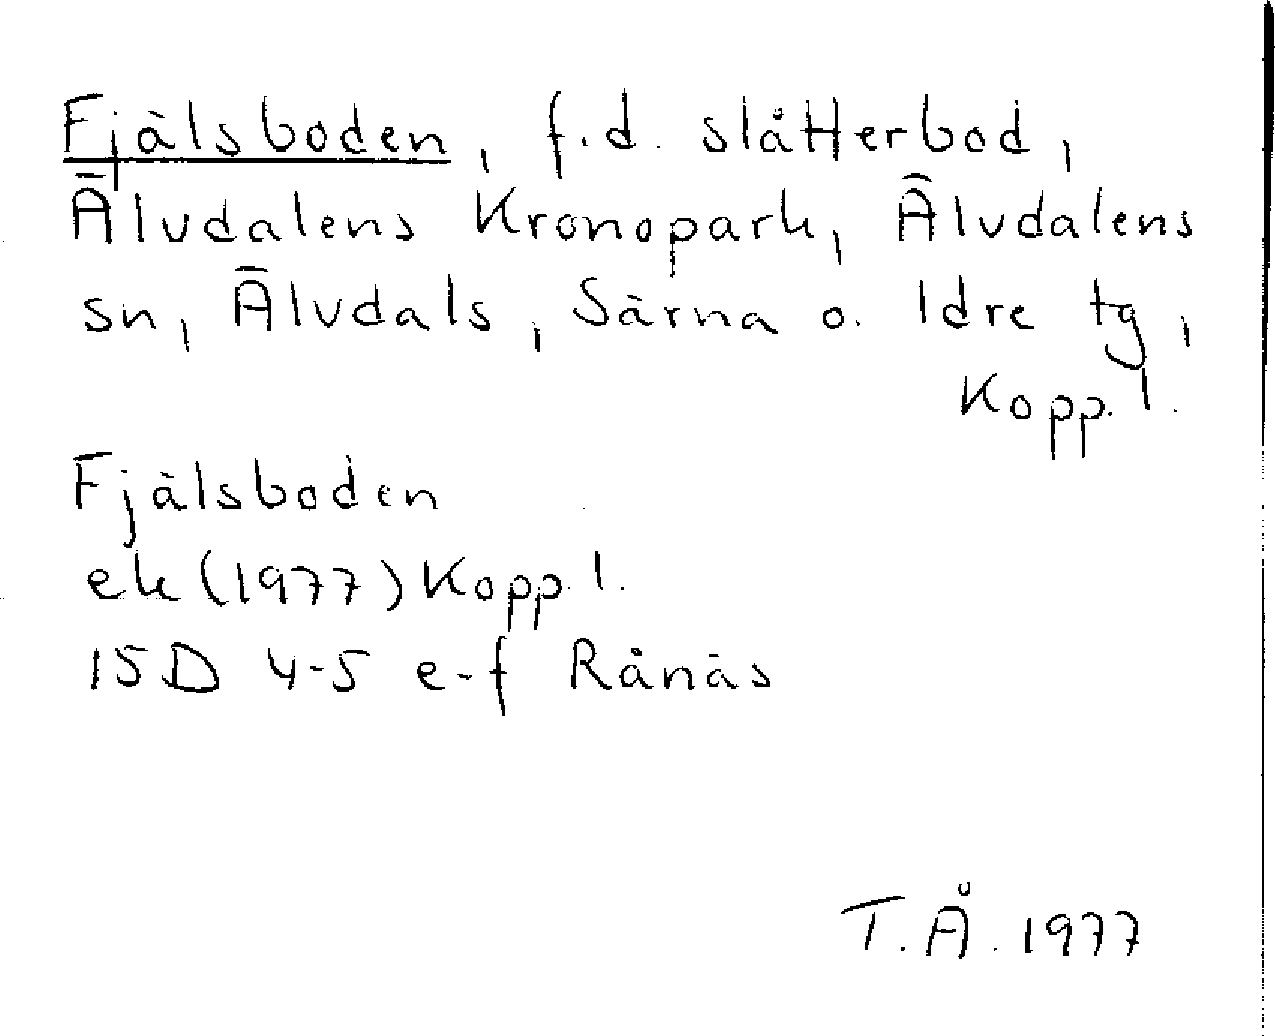 Fjälsboden, f.d. slåtterbod,
Älvdalens Kronopark, Älvdalens
sn, Älvdals, Särna o. Idre tg,
Kopp. l.
Fjälsboden
ek (1977) Kopp l.
15D 4-5 e-f Rånäs
T.Å. 1977